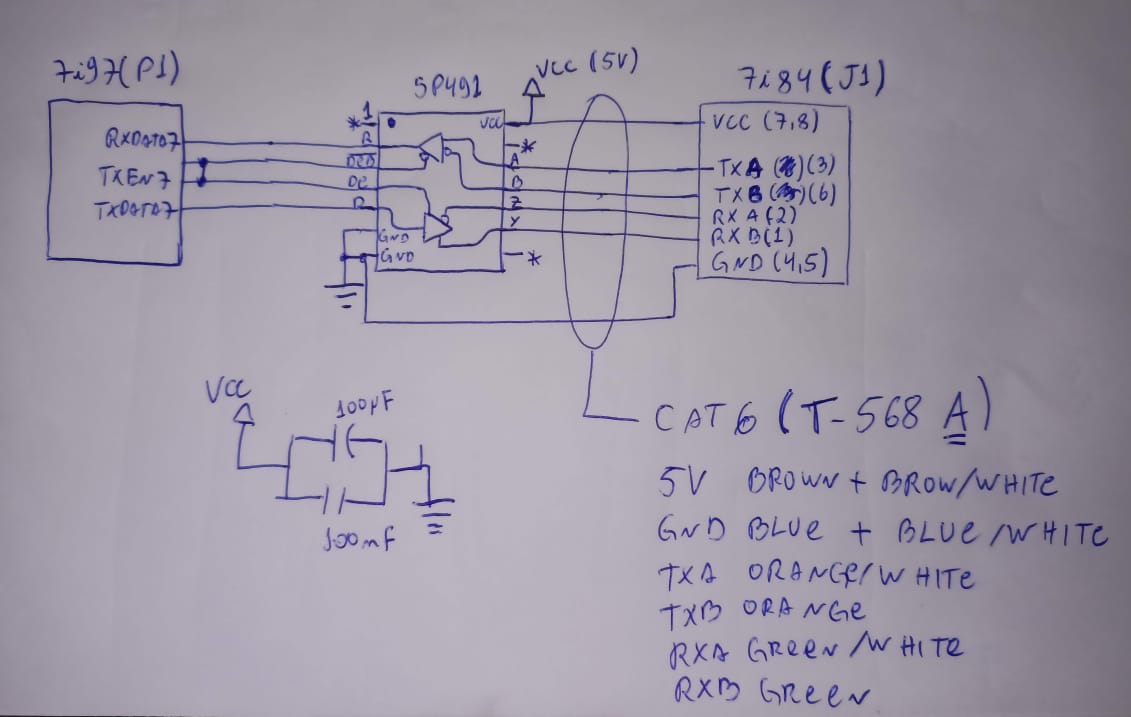 7i97(P1)
SP491
VCC (5V)
7i84 (J1)
RXDATA7
TXEN7
TXDATA7
* 1
R
DE
GND
GND
VCC
*
A
B
Z
Y
*
VCC (7,8)
TXA (3)
TXB (6)
RXA (2)
RXB (1)
GND (4,5)
VCC
100µF
100nF
CAT6 (T-568 A)
5V BROWN + BROW/WHITE
GND BLUE + BLUE/WHITE
TXA ORANGE/WHITE
TXB ORANGE
RXA GREEN/WHITE
RXB GREEN